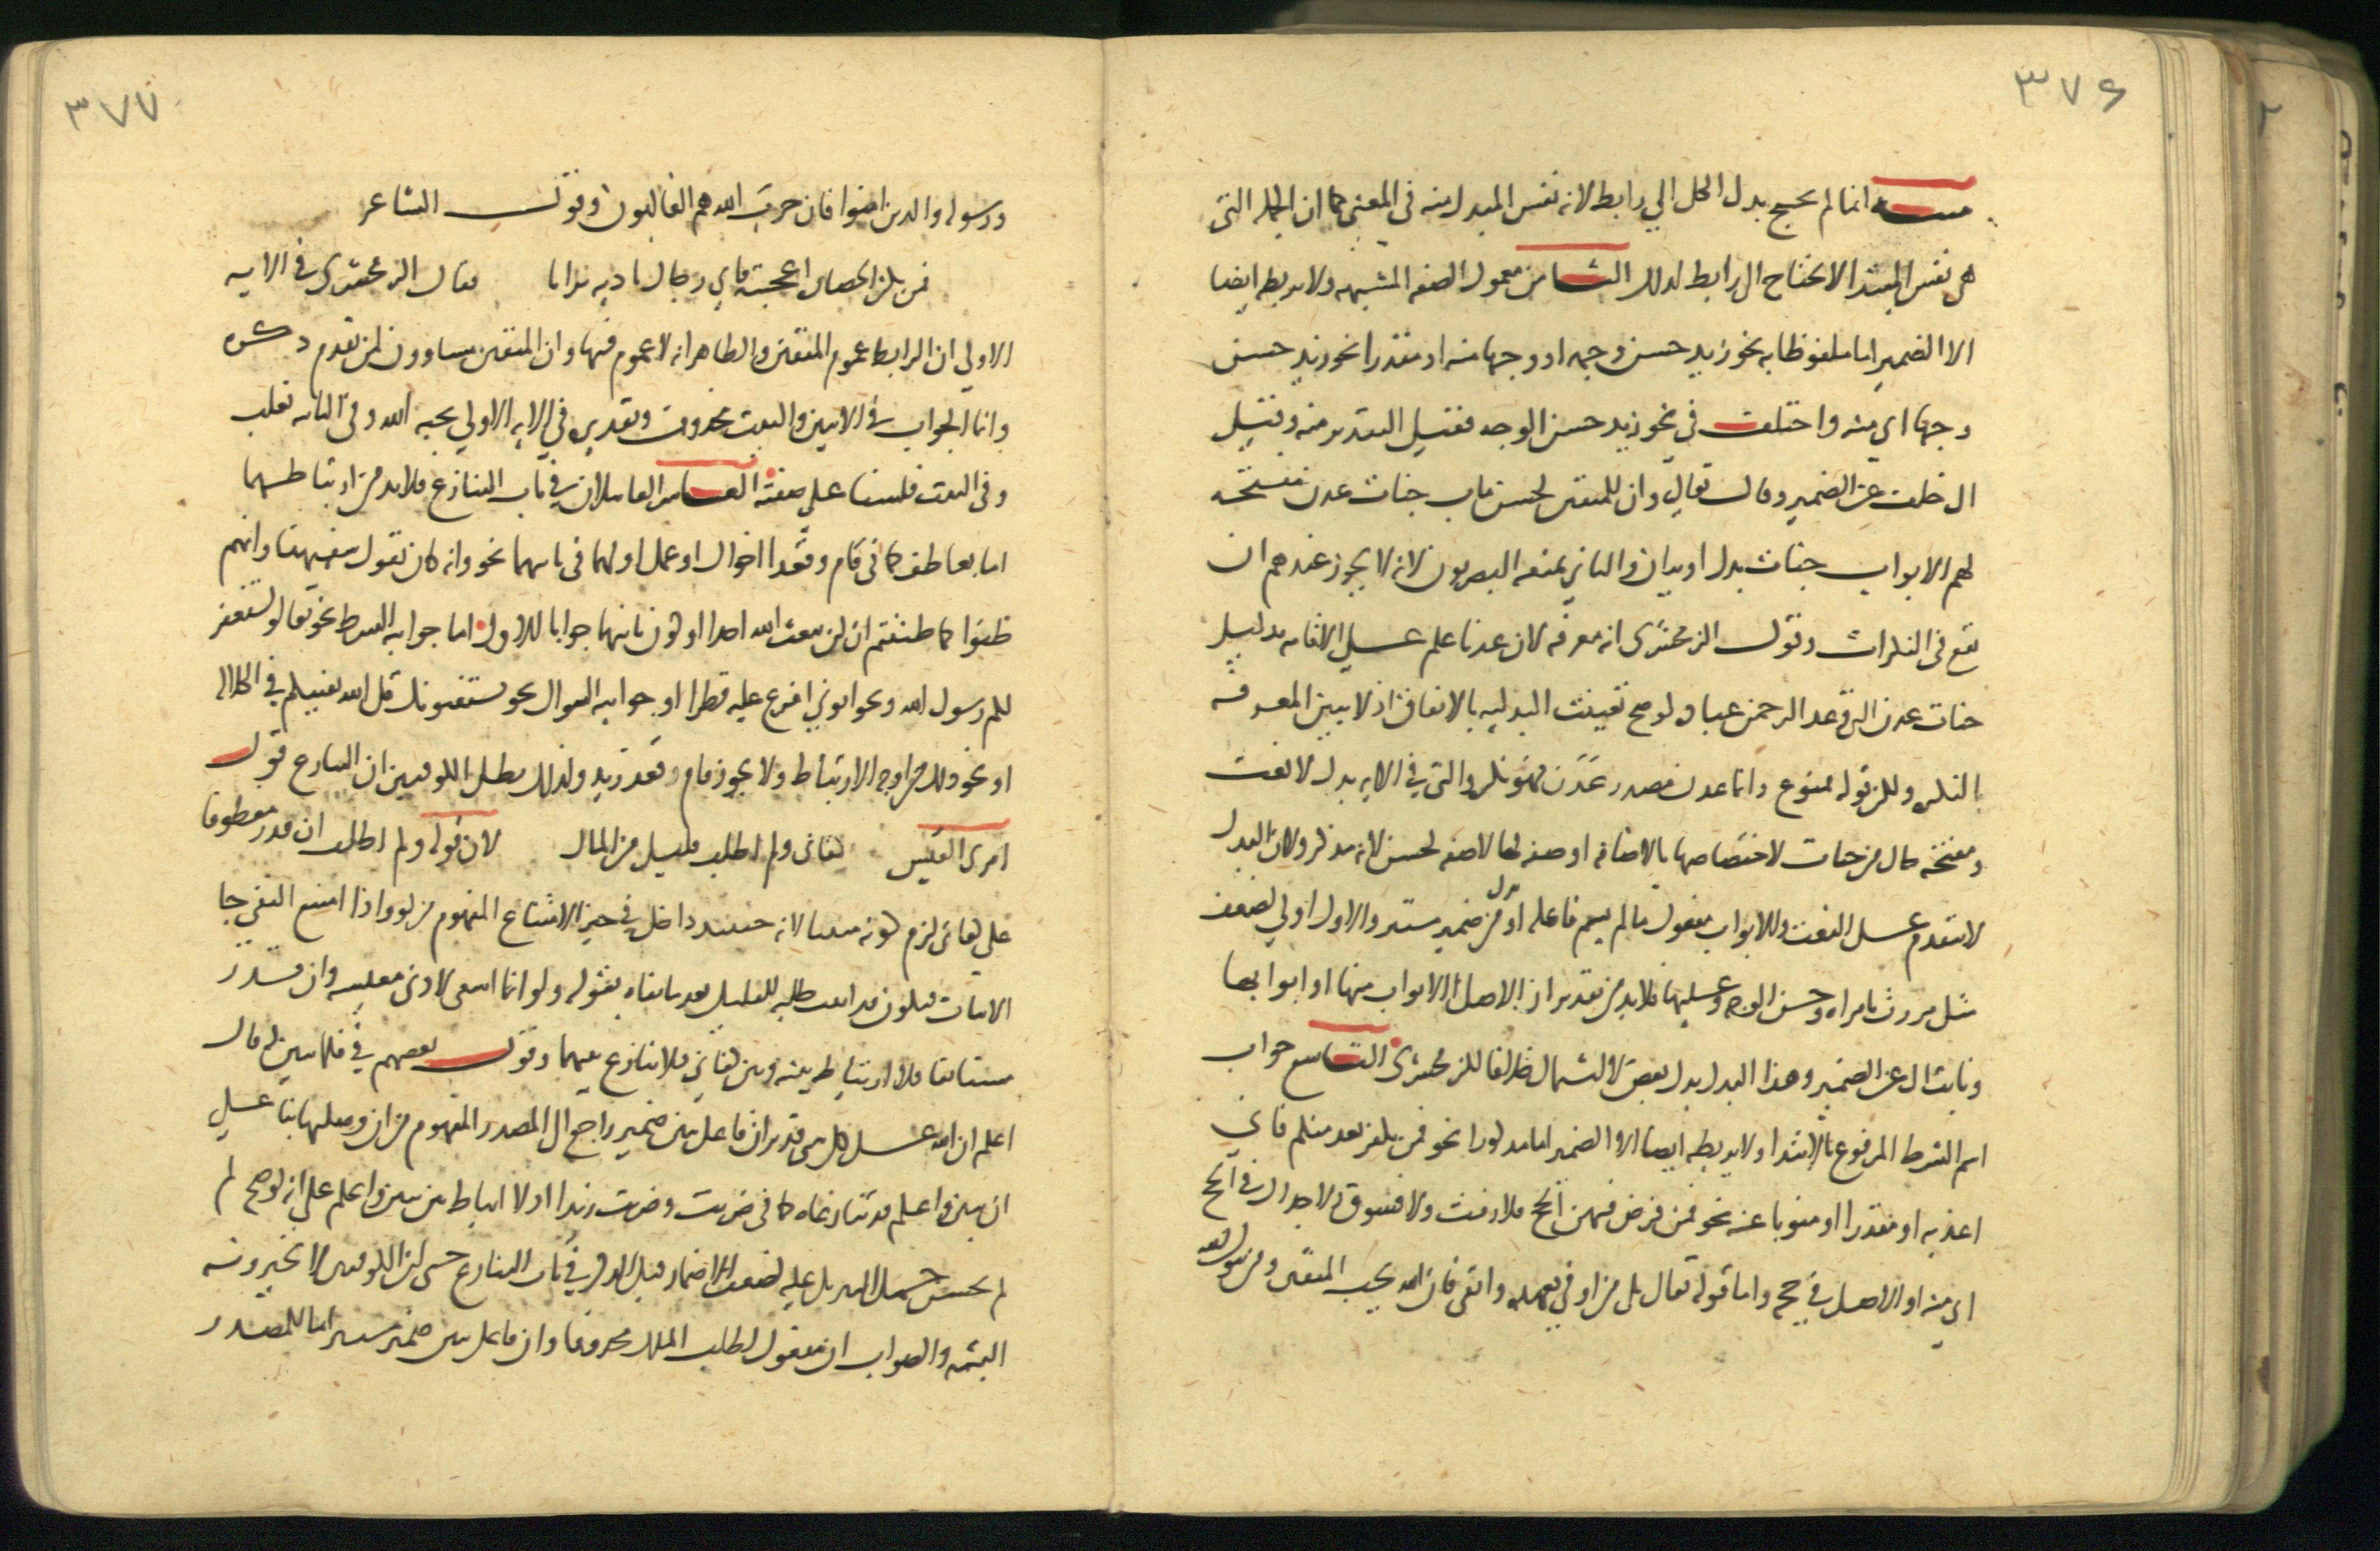 ٣٧٦
تنبيه انما لم يحتج بدل الكل الي رابط لانه نفس المبدل منه في المعني كما ان الجمله التي
هي نفس المبتدا لا تحتاج الي رابط لذلك الثامن معمول الصفه المشبهه ولا يربطه ايضا
الا الضمير اما ملفوظا به نحو زيد حسن وجهه او وجها منه او مقدرا نحو زيد حسن
وجها اي منه واختلف في نحو زيد حسن الوجه فقيل التقدير منه وقيل
ال خلف عن الضمير وقال تعالي وان للمتقين لحسن ماب جنات عدن مفتحه
لهم الابواب جنات بدل او بيان والثاني يمنعه البصريون لانه لا يجوز عندهم ان
تقع في النكرات وقول الزمخشري انه معرفه لان عدنا علم علي الاقامه بدليل
جنات عدن التي وعد الرحمن عباده لو صح تعينت البدليه بالاتفاق اذ لا تبين المعرفه
النكره ولكن قوله ممنوع وانما عدن مصدر عَدَن فهو نكره والتي في الايه بدل لا نعت
ومفتحه حال من جنات لاختصاصها بالاضافه او صفه لها لا صفه لحسن لانه مذكر ولان البدل
لا يتقدم علي النعت والابواب مفعول ما لم يسم فاعله او بدل من ضمير مستتر والاول اولي لضعف
مثل مررت بامراه حسنه الوجه وعليهما فلا بد من تقدير ان الاصل الابواب منها او ابوابها
ونابت ال عن الضمير وهذا البدل بدل بعض لا اشتمال خلافا للزمخشري التاسع جواب
اسم الشرط المرفوع بالابتدا ولا يربطه ايضا الا الضمير اما مذكورا نحو فمن يكفر بعد منكم فاني
اعذبه او مقدرا او منوبا عنه نحو فمن فرض فيهن الحج فلا رفث ولا فسوق ولا جدال في الحج
اي منه او الاصل في حجه واما قوله تعالي بلي من اوفي بعهده واتقي فان الله يحب المتقين ومن يتول الله
٣٧٧
ورسوله والدين امنوا فان حزب الله هم الغالبون وقول الشاعر
فمن تكن الحضاره اعجبته فاي رجال باديه ترانا فقال الزمخشري في الايه
الاولي ان الرابط عموم المتقين والظاهر انه لا عموم فيها وان المتقين مساوون لمن تقدم ذكره
وانما الجواب في الايتين والبيت محذوف وتقديره في الايه الاولي يحبه الله وفي الثانيه تغلب
وفي البيت فلسنا علي صفته العاشر العاملان في باب التنازع فلا بد من ارتباطهما
اما بعاطف كما في قام وقعدا اخواك او عمل اولهما في ثانيهما نحو وانه كان يقول سفيهنا وانهم
ظنوا كما ظننتم ان لن يبعث الله احدا او كون ثانيهما جوابا للاول اما جوابيه الشرط نحو تعالوا يستغفر
لكم رسول الله ونحو اتوني افرغ عليه قطرا او جوابيه السوال نحو يستفتونك قل الله يفتيكم في الكلاله
او نحو ذلك من اوجه الارتباط ولا يجوز قام وقعد زيد ولذلك بطل الكوفيين ان التنازع قول
امري القيس كفاني ولم اطلب قليل من المال لان قوله ولم اطلب ان قدر معطوفا
علي كفاني لزم كونه مثبتا لانه حينئذ داخل في حيز الامتناع المفهوم من لو واذا امتنع النفي جا
الاثبات فيكون قد اثبت طلبه للقليل بعد ما نفاه بقوله ولو انما اسعي لادني معيشه وان قدر
مستانفا فلا ارتباط بينه وبين كفاني فلا تنازع بينهما وقول بعضهم في فلما تبين له قال
اعلم ان الله علي كل شي قدير ان فاعل تبين ضمير راجع الي المصدر المفهوم من ان وصلتها بنا علي
ان تبين واعلم قد تنازعاه كما في ضربت وضربت زيدا اذ لا ارتباط بين تبين واعلم علي انه لو صح لم
لم يحسن حمل التنزيل عليه لضعف الاضمار قبل الذكر في باب التنازع حتي ان الكوفيين لا يجيزونه
البته والصواب ان مفعول اطلب الملك محذوفا وان فاعل تبين ضمير مستتر اما للمصدر